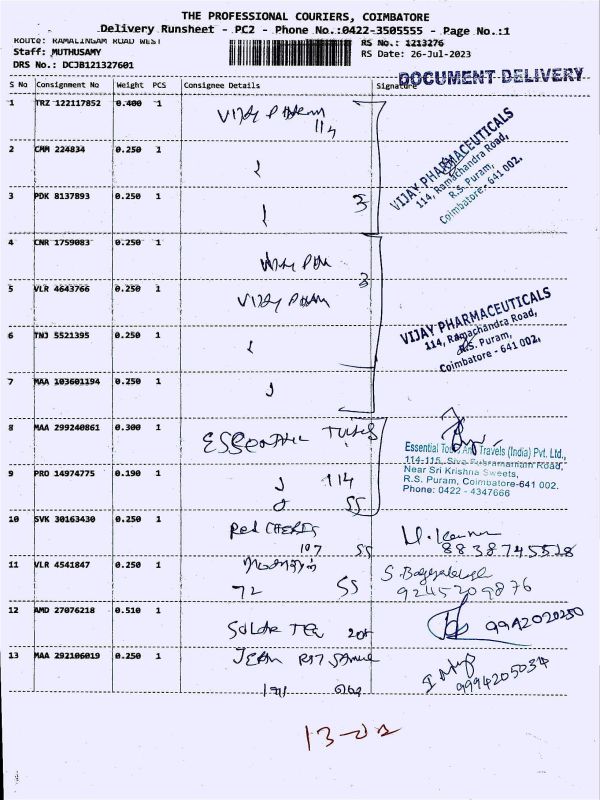 THE PROFESSIONAL COURIERS, COIMBATORE
Delivery Runsheet - PC2 - Phone No.:0422-3505555 - Page No.:1
Route: RAMALINGAM ROAD WEST
Staff: MUTHUSAMY
DRS No.: DCJB121327601
RS No.: 1213276
RS Date: 26-Jul-2023
DOCUMENT DELIVERY
S No Consignment No Weight PCS Consignee Details Signature
1 TRZ 122117852 0.400 1
114
VIJAY PHARMACEUTICALS
114, Ramachandra Road,
R.S. Puram,
Coimbatore - 641 002.
2 CMM 224834 0.250 1
3 PDK 8137893 0.250 1
3
4 CNR 1759083 0.250 1
3
5 VLR 4643766 0.250 1
VIJAY PHARM
VIJAY PHARMACEUTICALS
114, Ramachandra Road,
R.S. Puram,
Coimbatore - 641 002.
6 TNJ 5521395 0.250 1
7 MAA 103601194 0.250 1
8 MAA 299240861 0.300 1
Essential Tours And Travels (India) Pvt. Ltd.,
114-115, Siva Subramaniam Road,
Near Sri Krishna Sweets,
R.S. Puram, Coimbatore-641 002.
Phone: 0422 - 4347666
9 PRO 14974775 0.190 1
114
SS
10 SVK 30163430 0.250 1
Red
107 SS
8838745528
11 VLR 4541847 0.250 1
72 SS
9245209876
12 AMD 27076218 0.510 1
9942020250
13 MAA 292106019 0.250 1
9994205034